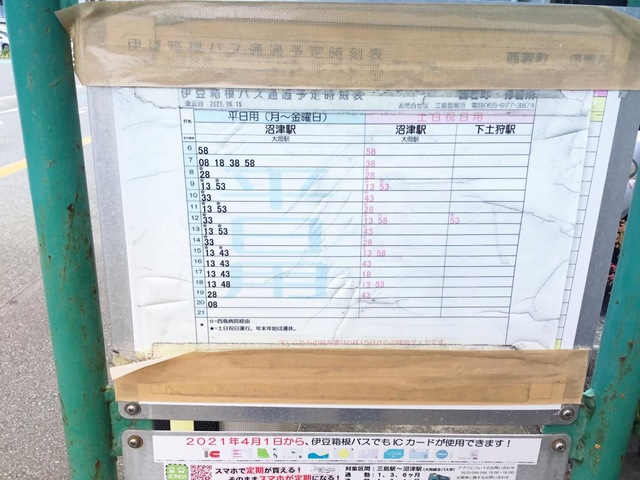 伊豆箱根バス通過予定時刻表
伊豆箱根バス通過予定時刻表
改正日 2020.06.15
お問合せは 三島営業所 電話055-977-3874
行先 平日用（月～金曜日） 土日祝日用
沼津駅 沼津駅 下土狩駅
大岡駅 大岡駅
6 58 58
7 08 18 38 58 38
8 28 28
9 13 53 13 53
10 33 43
11 13 53 28
12 33 13 58 53
13 13 53 43
14 33 28
15 13 43 13 58
16 13 43 43
17 13 43 18
18 13 48 13 58
19 28 43
20 08
21
平日用
☆=西島病院経由
★=土日祝日運行。年末年始は運休。
2021年4月1日から、伊豆箱根バスでもICカードが使用できます！
スマホで定期が買える！
そのままスマホが定期になる！
対象区間：三島駅～沼津駅
1、3、6ヶ月